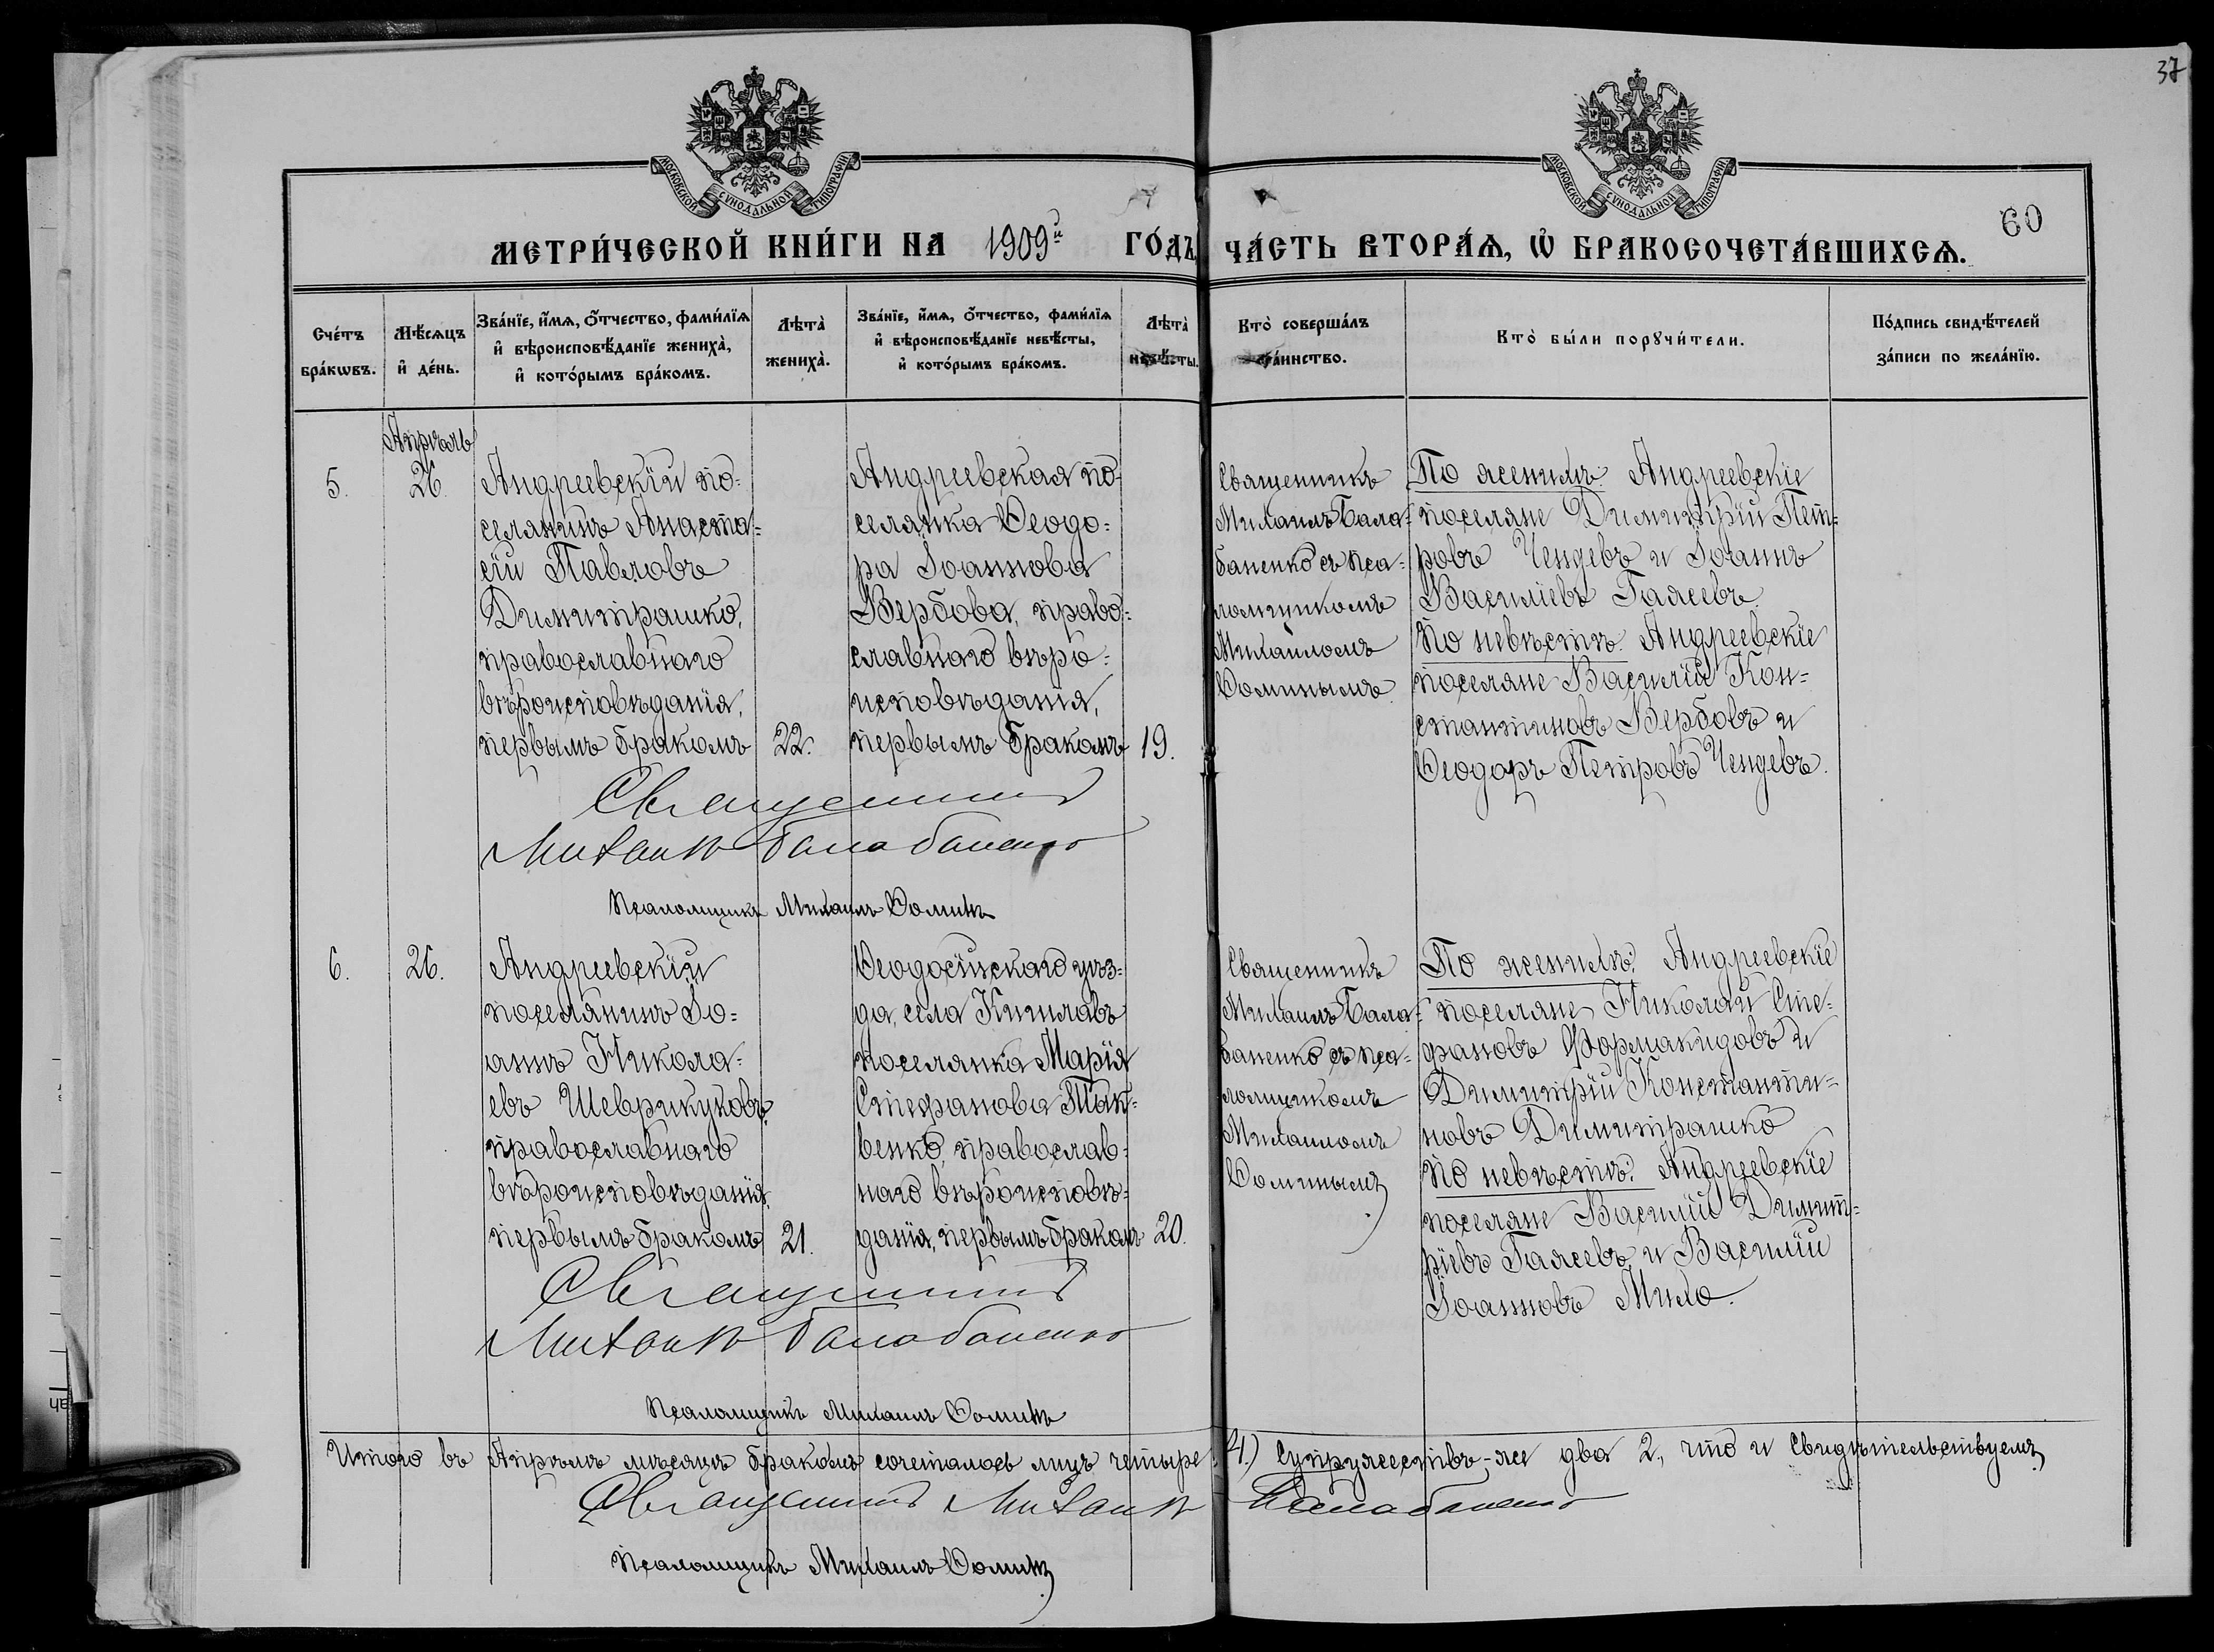 37
МОСКОВСКОЙ СУНОДАЛЬНОЙ ТИПОГРАФІИ
МОСКОВСКОЙ СУНОДАЛЬНОЙ ТИПОГРАФІИ
60
МЕТРИ́ЧЕСКОЙ КНИ́ГИ НА 1909й ГО́ДЪ, ЧА́СТЬ ВТОРА́Ѧ, Ѽ БРАКОСОЧЕТА́ВШИХСѦ.
Сче́тъ
бра́кѡвъ.
Мѣ́сѧцъ
и҆ де́нь.
Зва́нїе, и҆́мѧ, ѻ҆́тчество, фами́лїѧ
и҆ вѣроисповѣ́данїе жениха̀,
и҆ кото́рымъ бра́комъ.
Лѣта̀
жениха̀.
Зва́нїе, и҆́мѧ, ѻ҆́тчество, фами́лїѧ
и҆ вѣроисповѣ́данїе невѣ́сты,
и҆ кото́рымъ бра́комъ.
Лѣта̀
невѣ́сты.
Кто̀ соверша́лъ
та́инство.
Кто̀ бы́ли порꙋчи́тели.
По́дпись свидѣ́телей
за́писи по жела́нїю.
Апрѣль
5.
26.
Андреевскій по=
селянинъ Анаста=
сій Павловъ
Димитрашко,
православнаго
вѣроисповѣданія,
первымъ бракомъ
22.
Андреевская по=
селянка Ѳеодо=
ра Іоаннова
Вербова, право=
славнаго вѣро=
исповѣданія,
первымъ бракомъ
19.
Священникъ
Михаилъ Бала=
баненко съ пса=
ломщикомъ
Михаиломъ
Ѳоминымъ.
По женихѣ: Андреевскіе
поселяне Димитрій Пет=
ровъ Чендевъ и Іоаннъ
Василіевъ Гаясевъ.
По невѣстѣ: Андреевскіе
поселяне Василій Кон=
стантиновъ Вербовъ и
Ѳеодоръ Петровъ Чендевъ.
Священникъ
Михаилъ Балабаненко
Псаломщикъ Михаилъ Ѳоминъ
6.
26.
Андреевскій
поселянинъ Іо=
аннъ Никола=
евъ Шеврикуковъ,
православнаго
вѣроисповѣданія,
первымъ бракомъ
21.
Ѳеодосійскаго уѣз=
да, села Кишлавъ
поселянка Марія
Стефанова
православ=
наго вѣроисповѣ=
данія, первымъ бракомъ
20.
Священникъ
Михаилъ Бала=
баненко съ пса=
ломщикомъ
Михаиломъ
Ѳоминымъ.
По женихѣ: Андреевскіе
поселяне Николай Сте=
фановъ Формакидовъ и
Димитрій Константи=
новъ Димитрашко
По невѣстѣ: Андреевскіе
поселяне Василій Димит=
ріевъ Гаясевъ и Василій
Іоанновъ Михо.
Священникъ
Михаилъ Балабаненко
Псаломщикъ Михаилъ Ѳоминъ
Итого въ Апрѣлѣ мѣсяцѣ бракомъ сочеталось лицъ четыре 4.) супружествъ-же два 2., что и свидѣтельствуемъ
Священникъ Михаилъ Балабаненко
Псаломщикъ Михаилъ Ѳоминъ